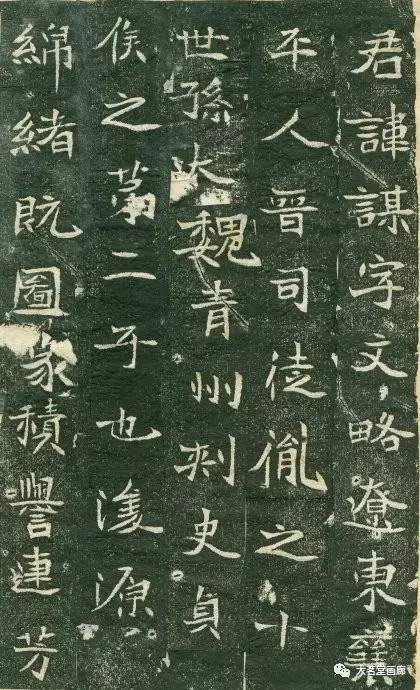 君諱謀字文略遼東襄
平人晉司徒胤之十
世孫大魏青州刺史貞
侯之苐二子也浚源
綿緒既圖家積譽連芳
天茗堂画廊